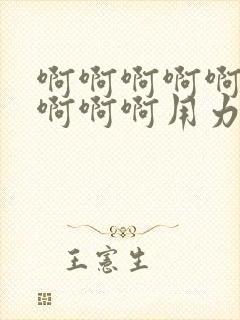 啊啊啊啊啊
啊啊啊用力
王宪生